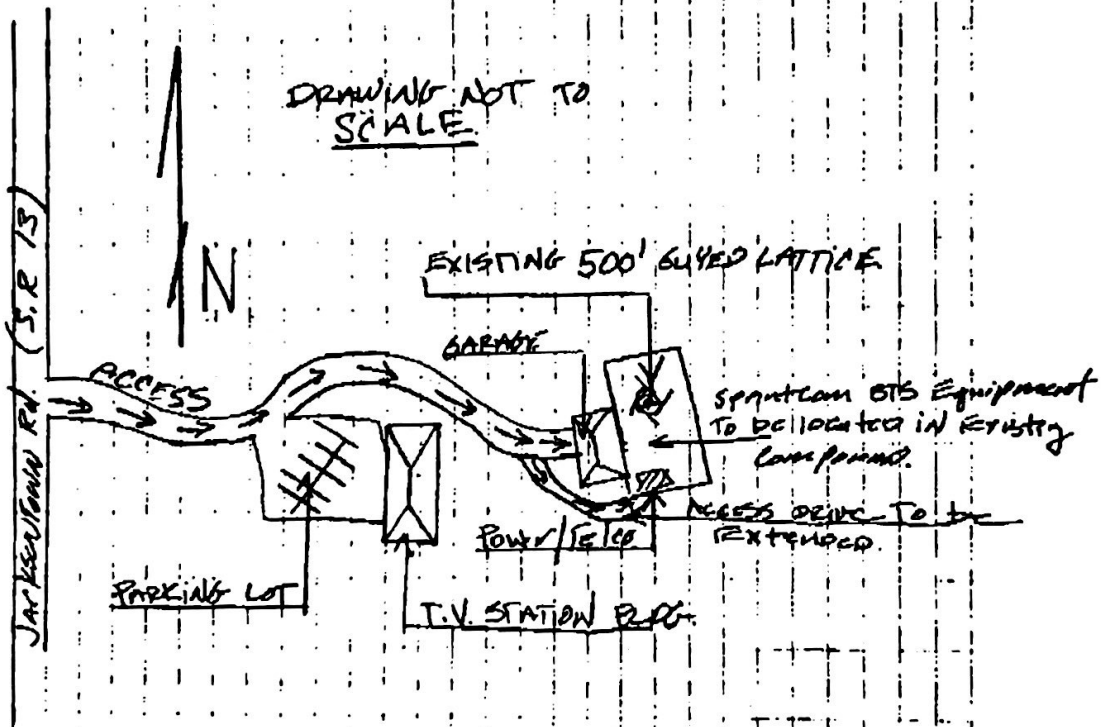 DRAWING NOT TO
SCALE
JACKSONTOWN RD. (S.R 13)
N
EXISTING 500' GUYED LATTICE
GARAGE
ACCESS
BTS Equipment
To be located in Existing
Compound.
ACCESS DRIVE TO be
Extended.
Power/Telco
PARKING LOT
T.V. STATION BLDG.